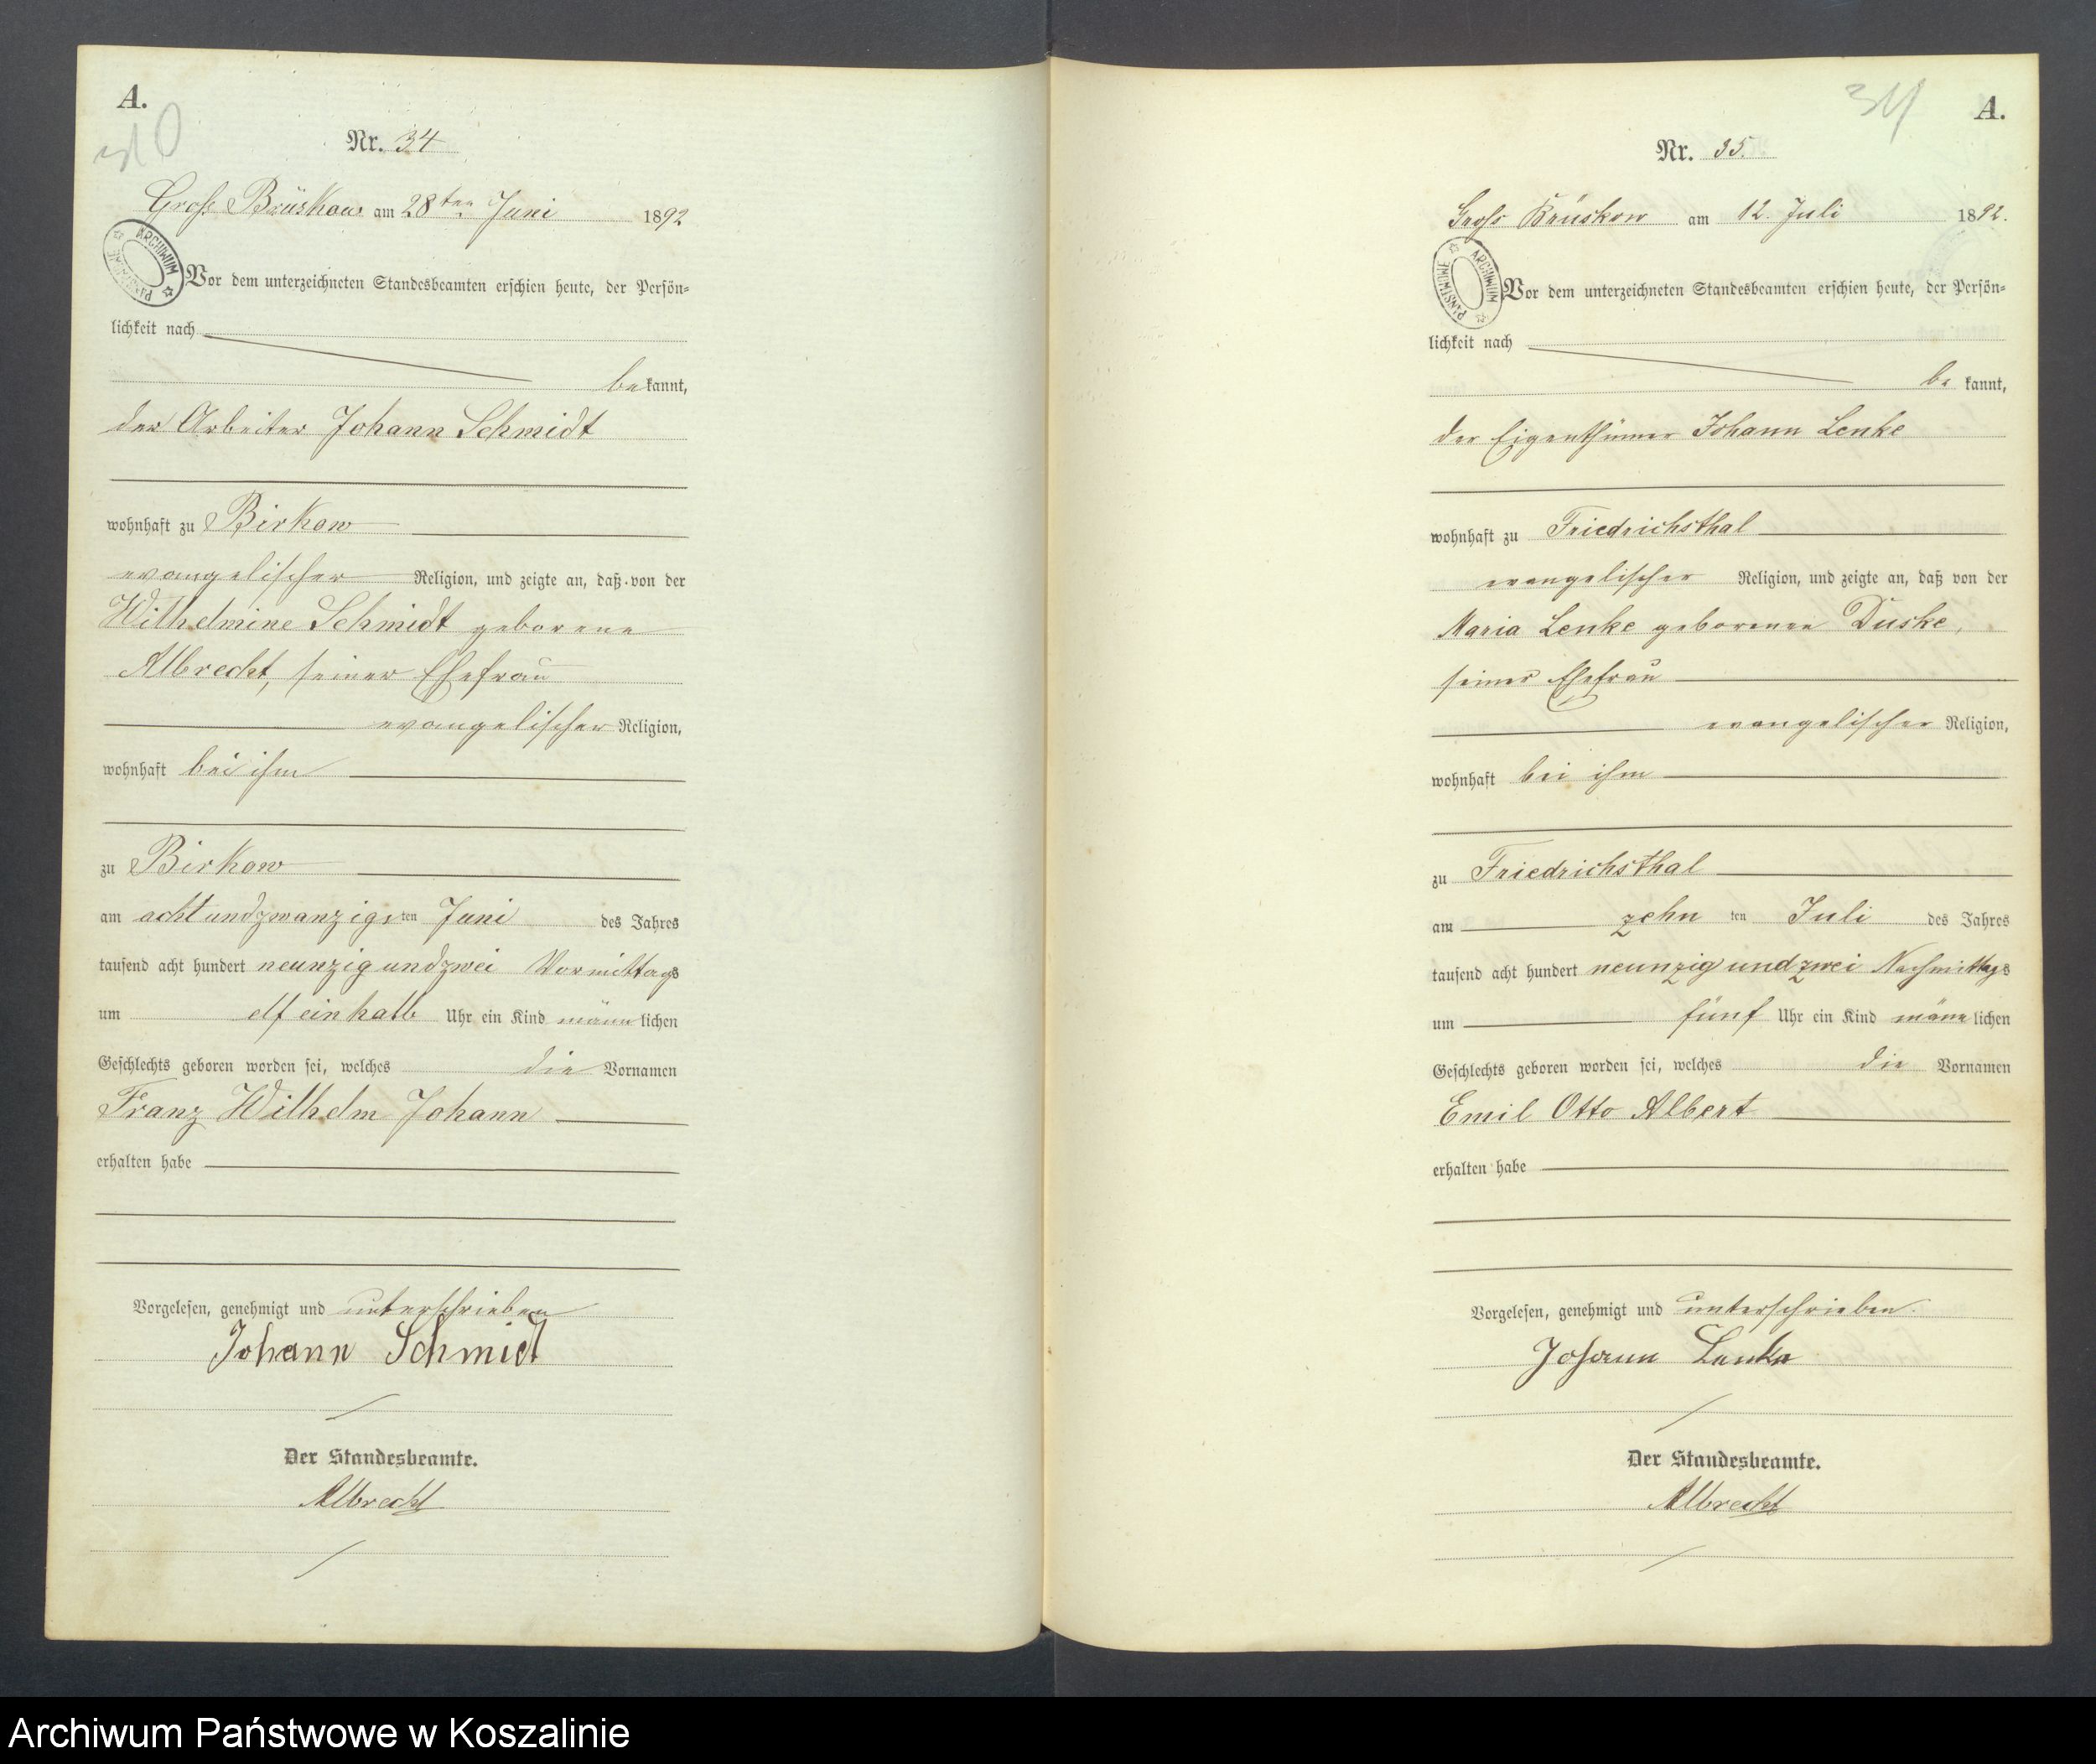 A.
Nr. 34
Gross Brüskow am 28ten Juni 1892
ARCHIWUM PAŃSTWOWE
Vor dem unterzeichneten Standesbeamten erschien heute, der Persön-
lichkeit nach
bekannt,
der Arbeiter Johann Schmidt
wohnhaft zu Birkow
evangelischer Religion, und zeigte an, daß von der
Wilhelmine Schmidt geborene
Albrecht, seiner Ehefrau
evangelischer Religion,
wohnhaft bei ihm
zu Birkow
am achtundzwanzigsten Juni des Jahres
tausend acht hundert neunzig und zwei Vormittags
um elf ein halb Uhr ein Kind männlichen
Geschlechts geboren worden sei, welches die Vornamen
Franz Wilhelm Johann
erhalten habe
Vorgelesen, genehmigt und unterschrieben
Johann Schmidt
Der Standesbeamte.
Albrecht
34
A.
Nr. 35.
Gross Brüskow am 12. Juli 1892.
ARCHIWUM PAŃSTWOWE
Vor dem unterzeichneten Standesbeamten erschien heute, der Persön-
lichkeit nach
bekannt,
der Eigenthümer Johann Lenke
wohnhaft zu Friedrichsthal
evangelischer Religion, und zeigte an, daß von der
Maria Lenke geborenen Duske,
seiner Ehefrau
evangelischer Religion,
wohnhaft bei ihm
zu Friedrichsthal
am zehnten Juli des Jahres
tausend acht hundert neunzig und zwei Nachmittags
um fünf Uhr ein Kind männlichen
Geschlechts geboren worden sei, welches die Vornamen
Emil Otto Albert
erhalten habe
Vorgelesen, genehmigt und unterschrieben.
Johann Lenke
Der Standesbeamte.
Albrecht
Archiwum Państwowe w Koszalinie